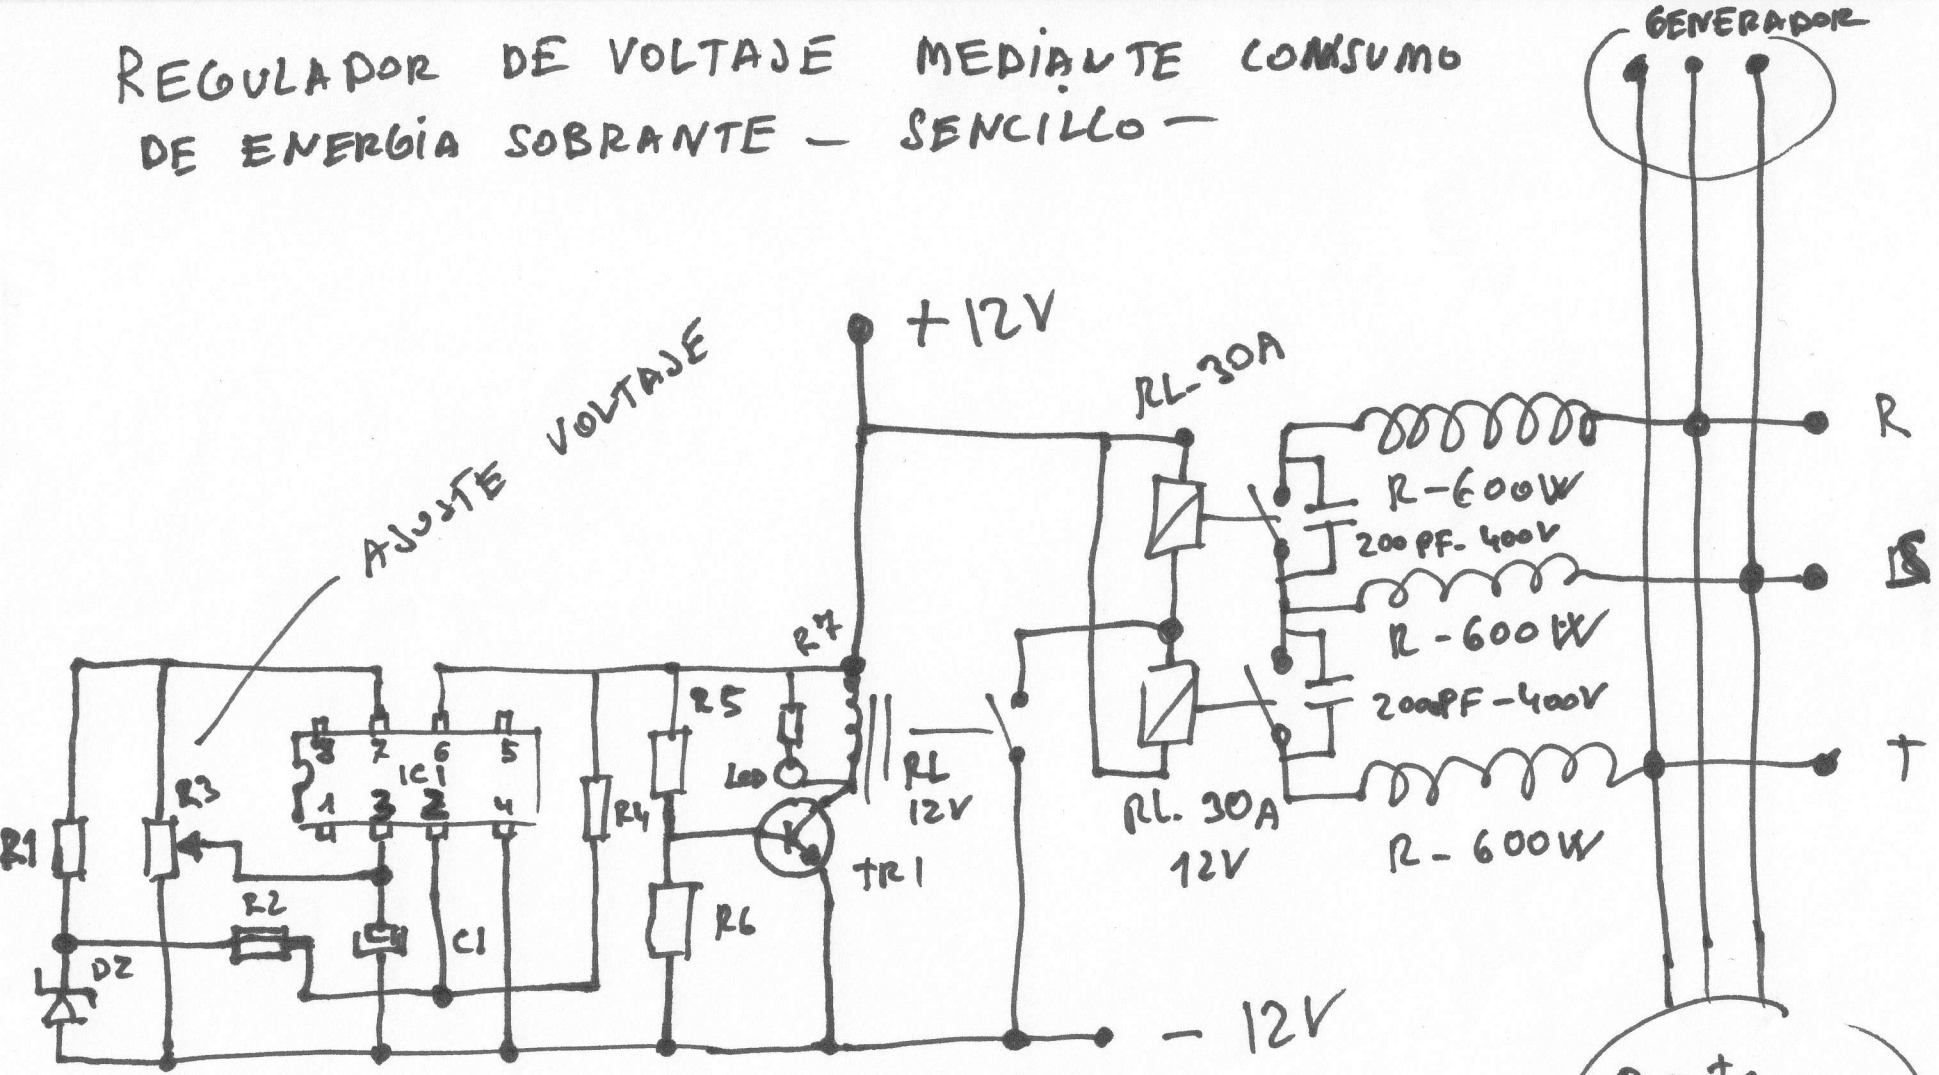 REGULADOR DE VOLTAJE MEDIANTE CONSUMO
DE ENERGÍA SOBRANTE - SENCILLO -
GENERADOR
+12V
AJUSTE VOLTAJE
RL-30A
R
R-600W
200PF-400V
S
R-600W
200PF-400V
T
R-600W
RL. 30A
12V
RL
12V
R7
R5
LED
TR1
R6
R4
8 7 6 5
IC1
1 3 2 4
R3
R1
R2
C1
DZ
- 12V